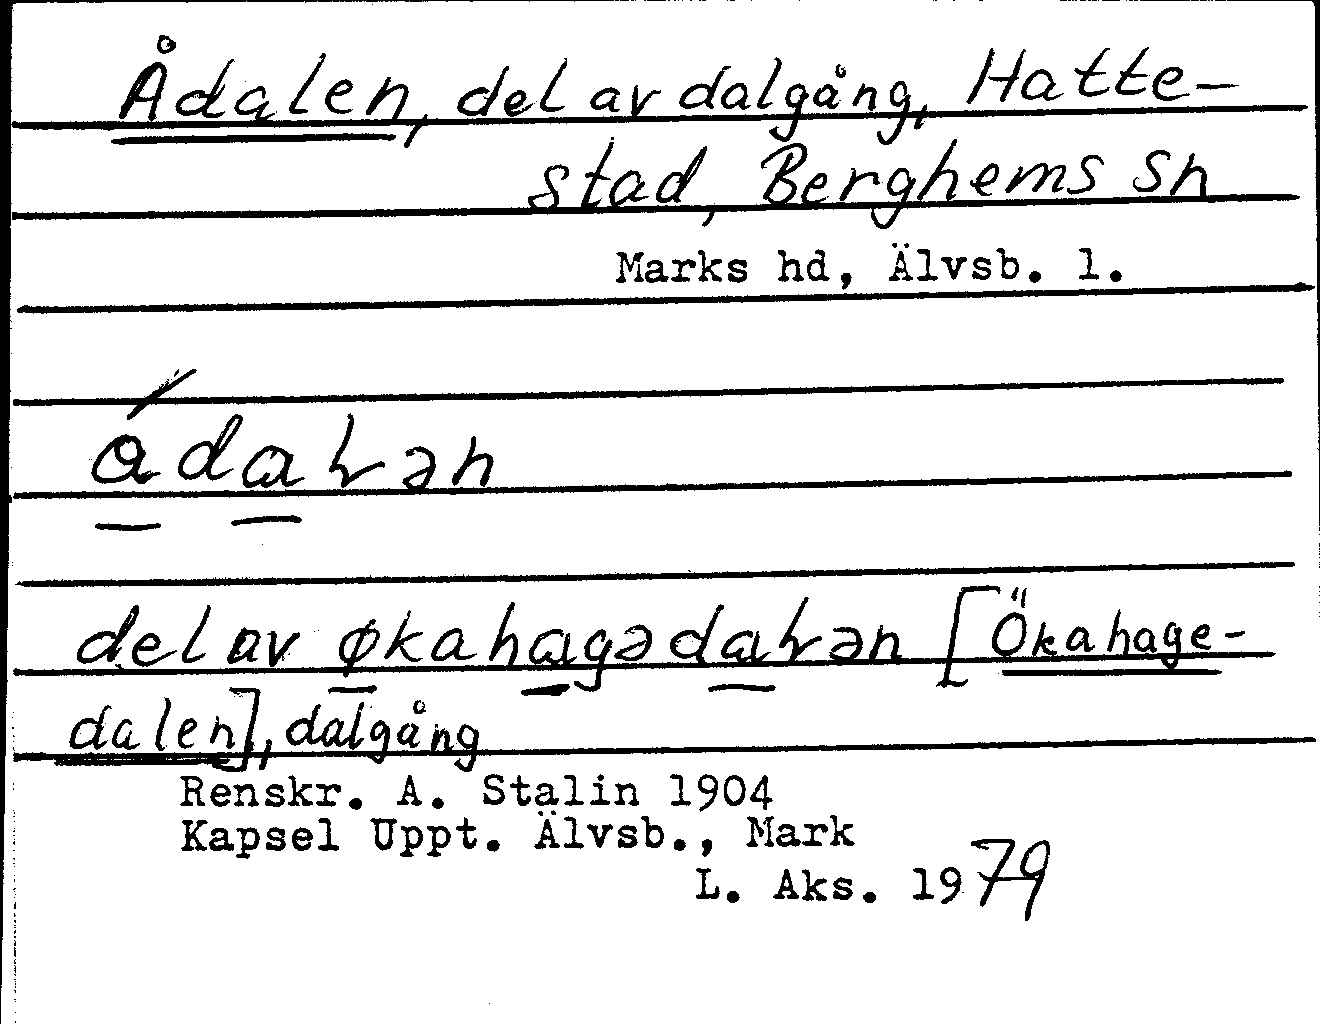 Ådalen, del av dalgång, Hatte-
stad, Berghems sn
Marks hd, Älvsb. l.
ádaɽən
del av økahagədaɽən [Ökahage-
dalen], dalgång
Renskr. A. Stalin 1904
Kapsel Uppt. Älvsb., Mark
L. Aks. 1979